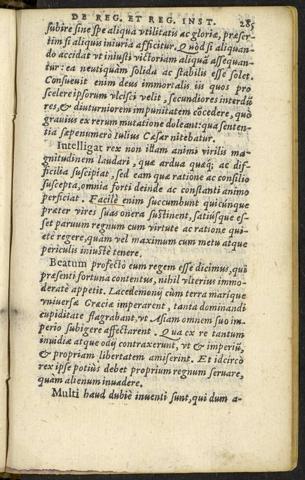 DE REG. ET REG. INST. 285
subire sine spe aliqua vtilitatis ac gloriæ, præser-
tim si aliquis iniuria afficitur. Quòd si aliquan-
do accidat vt iniusti victoriam aliquā assequan-
tur: ea neutiquàm solida ac stabilis esse solet.
Consueuit enim deus immortalis iis quos pro
scelere ipsorum vlcisci velit, secundiores interdū
res, & diuturniorem impunitatem cōcedere, quò
grauius ex rerum mutatione doleant: qua senten-
tia sæpenumerò Iulius Cæsar nitebatur.
Intelligat rex non illam animi virilis ma-
gnitudinem laudari, quæ ardua quæq; ac dif-
ficilia suscipiat, sed eam quæ ratione ac consilio
suscepta, omnia forti deinde ac constanti animo
perficiat. Facilè enim succumbunt quicunque
præter vires suas onera sustinent, satiúsque es-
set paruum regnum cum virtute ac ratione qui-
etè regere, quàm vel maximum cum metu atque
periculis iniustè tenere.
Beatum profectò eum regem esse dicimus, qui
præsenti fortuna contentus, nihil vlterius immo-
deratè appetit. Lacedæmonij cùm terra maríque
vniuersæ Græciæ imperarent, tanta dominandi
cupiditate flagrabant, vt Asiam omnem suo im-
perio subigere affectarent. Qua ex re tantum
inuidiæ atque odij contraxerunt, vt & imperiū,
& propriam libertatem amiserint. Et idcircò
rex ipse potiùs debet proprium regnum seruare,
quàm alienum inuadere.
Multi haud dubiè inuenti sunt, qui dum a-